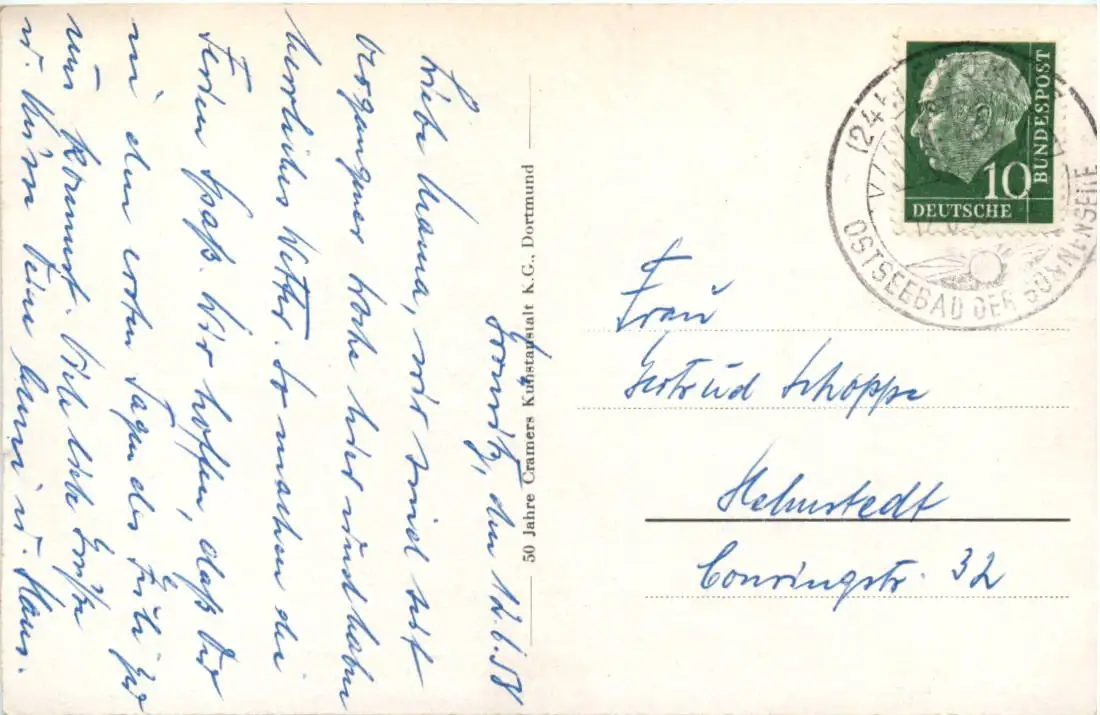 Grömitz, den 12.6.58
Liebe Mama, wir sind seit
vergangener Woche hier und haben
herrliches Wetter. So machen die
Ferien Spaß. Wir hoffen, daß Du
in den ersten Tagen des Juli zu
uns kommst. Viele liebe Grüße
u. Küsse Deine u. Klaus.
50 Jahre Cramers Kunstanstalt K.G., Dortmund
Frau
Gertrud Schoppe
Helmstedt
Conringstr. 32
10
BUNDESPOST
DEUTSCHE
(24
OSTSEEBAD DER SONNENSEITE